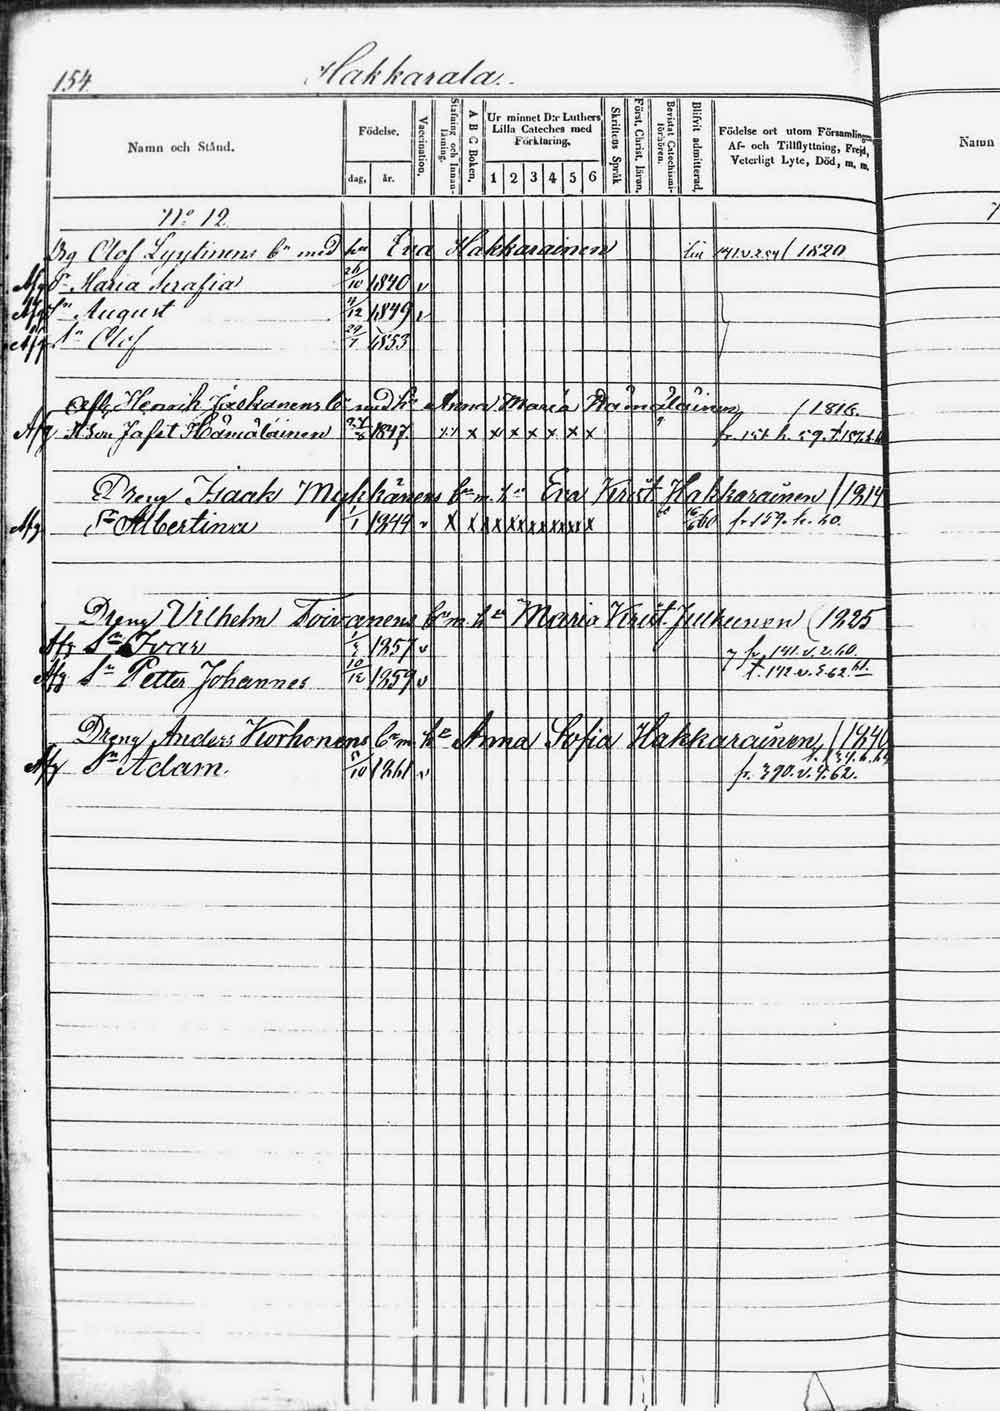 154.
Hakkarala.
Namn och Stånd.
Födelse.
dag, år.
Vaccination,
Stafning och Innanläsning.
A B C Boken,
Ur minnet D:r Luthers Lilla Cateches med Förklaring.
1 2 3 4 5 6
Skriftens Språk
Först. Christ. läran,
Bevistat Catechismiförhören.
Blifvit admitterad,
Födelse ort utom Församlingen, Af- och Tillflyttning, Frejd, Veterligt Lyte, Död, m. m.
Namn
No 12.
Olof Lyytinens bn med hu Eva Hakkarainen /1820
Afg Dr Maria Serafia 26/10 1840 v
Afg Sn August 4/12 1849 v
Afg Sn Olof 29/7 1853
Henrik Jäskänens bn med hu Anna Maria Hämäläinen /1816.
Afg Son Jafet Hämäläinen 1847. x x x x x x x x
Dreng Isaak Mykkänens bn m. hu Eva Krist. Hakkarainen /1814
Afg Dr Albertina 1/1 1844 v x x x x x x x x fr. 159. h. 60.
Dreng Vilhelm Toivanens bn m. hu Maria Krist. Julkunen /1825
Afg Sn Ivar 1857 v fr. 141. v. 2. 60.
Afg Sn Petter Johannes 10/12 1859 v
Dreng Anders Korhonens bn m. hu Anna Sofia Hakkarainen, /1840
Afg Sn Adam. 5/10 1861 v fr. 390. v. 9. 62.